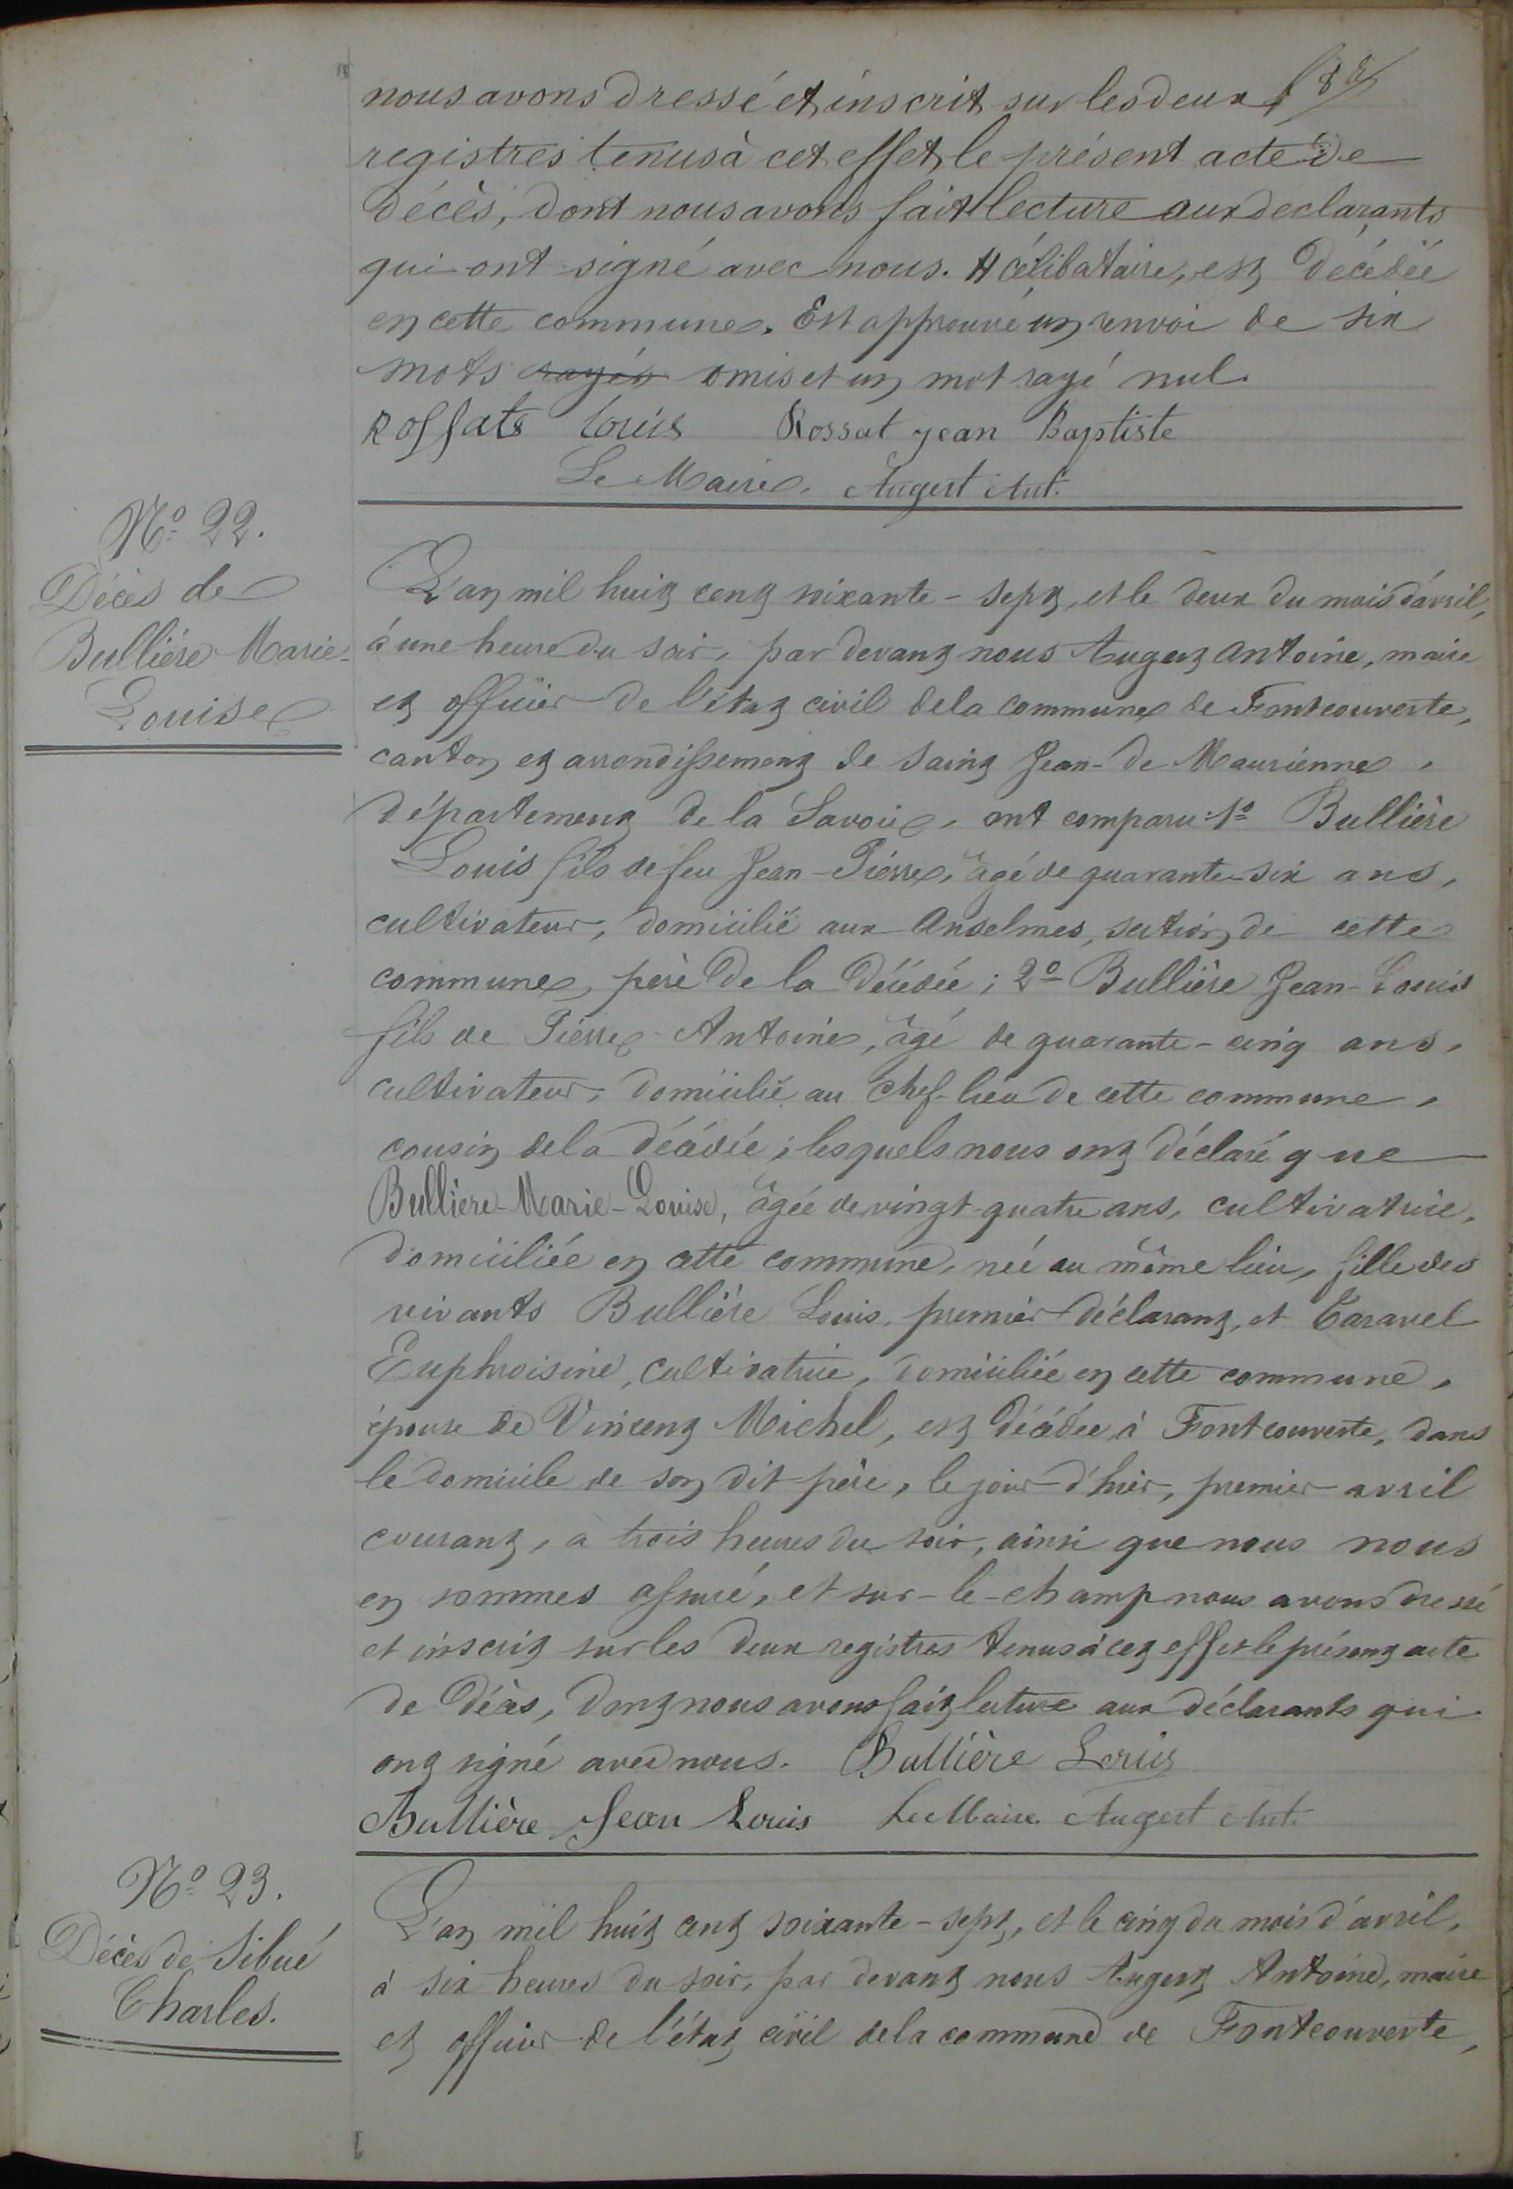 nous avons dressé et inscrit sur les deux
registres tenus à cet effet, le présent acte de
décès, dont nous avons fait lecture aux declarants
qui ont signé avec nous. # célibataire, est décédée
en cette commune. Est approuvé un renvoi de six
mots rayés omis et un mot rayé nul.
Rossats Louis Rossat jean Baptiste
Le Maire. Augert Ant.
N° 22.
Décès de
Bullière Marie-
Louise
L'an mil huit cent soixante-sept, et le deux du mois d'avril,
à une heure du soir, par devant nous Augert Antoine, maire
et officier de l'état civil de la commune de Fontcouverte,
canton et arrondissement de Saint Jean-de Maurienne,
département de la Savoie, ont comparu: 1° Bullière
Louis fils de feu Jean-Pierre, âgé de quarante-six ans,
cultivateur, domicilié aux Anselmes, section de cette
commune, père de la décédée; 2° Bullière Jean-Louis
fils de Pierre Antoine, âgé de quarante-cinq ans,
cultivateur, domicilié au chef-lieu de cette commune,
cousin de la décédée; lesquels nous ont déclaré que
Bullière-Marie-Louise, âgée de vingt-quatre ans, cultivatrice,
domiciliée en cette commune, née au même lieu, fille des
vivants Bullière Louis, premier déclarant, et Caravel
Euphroisine, cultivatrice, domiciliée en cette commune,
épouse de Vincent Michel, est décédée à Fontcouverte, dans
le domicile de son dit père, le jour d'hier, premier avril
courant, à trois heures du soir, ainsi que nous nous
en sommes assuré, et sur-le-champ nous avons dressé
et inscrit sur les deux registres tenus à cet effet le présent acte
de décès, dont nous avons fait lecture aux déclarants qui
ont signé avec nous. Bullière Louis
Bullière Jean Louis Le Maire. Augert Ant.
N° 23.
Décès de Sibué
Charles.
L'an mil huit cent soixante-sept, et le cinq du mois d'avril,
à six heures du soir, par devant nous Augert Antoine, maire
et officier de l'état civil de la commune de Fontcouverte,